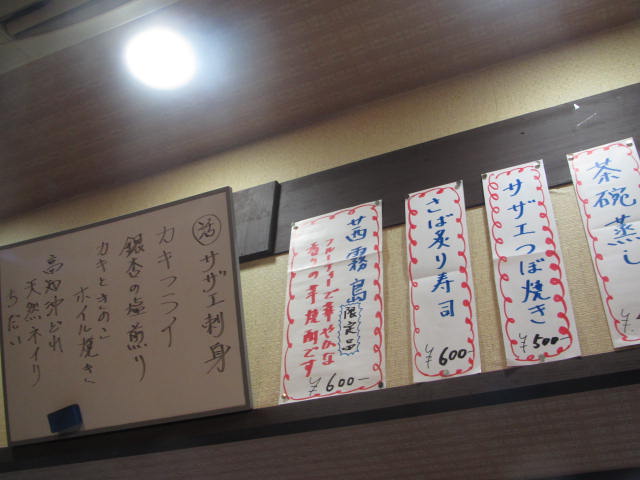 茶碗蒸し
サザエつぼ焼き
¥500-
さば炙り寿司
¥600-
茜霧島
限定品
フルーティーで華やかな
香りの芋焼酎です
¥600-
活サザエ刺身
カキフライ
銀杏の塩煎り
カキときのこ
ホイル焼き
高知沖どれ
天然ネイリ